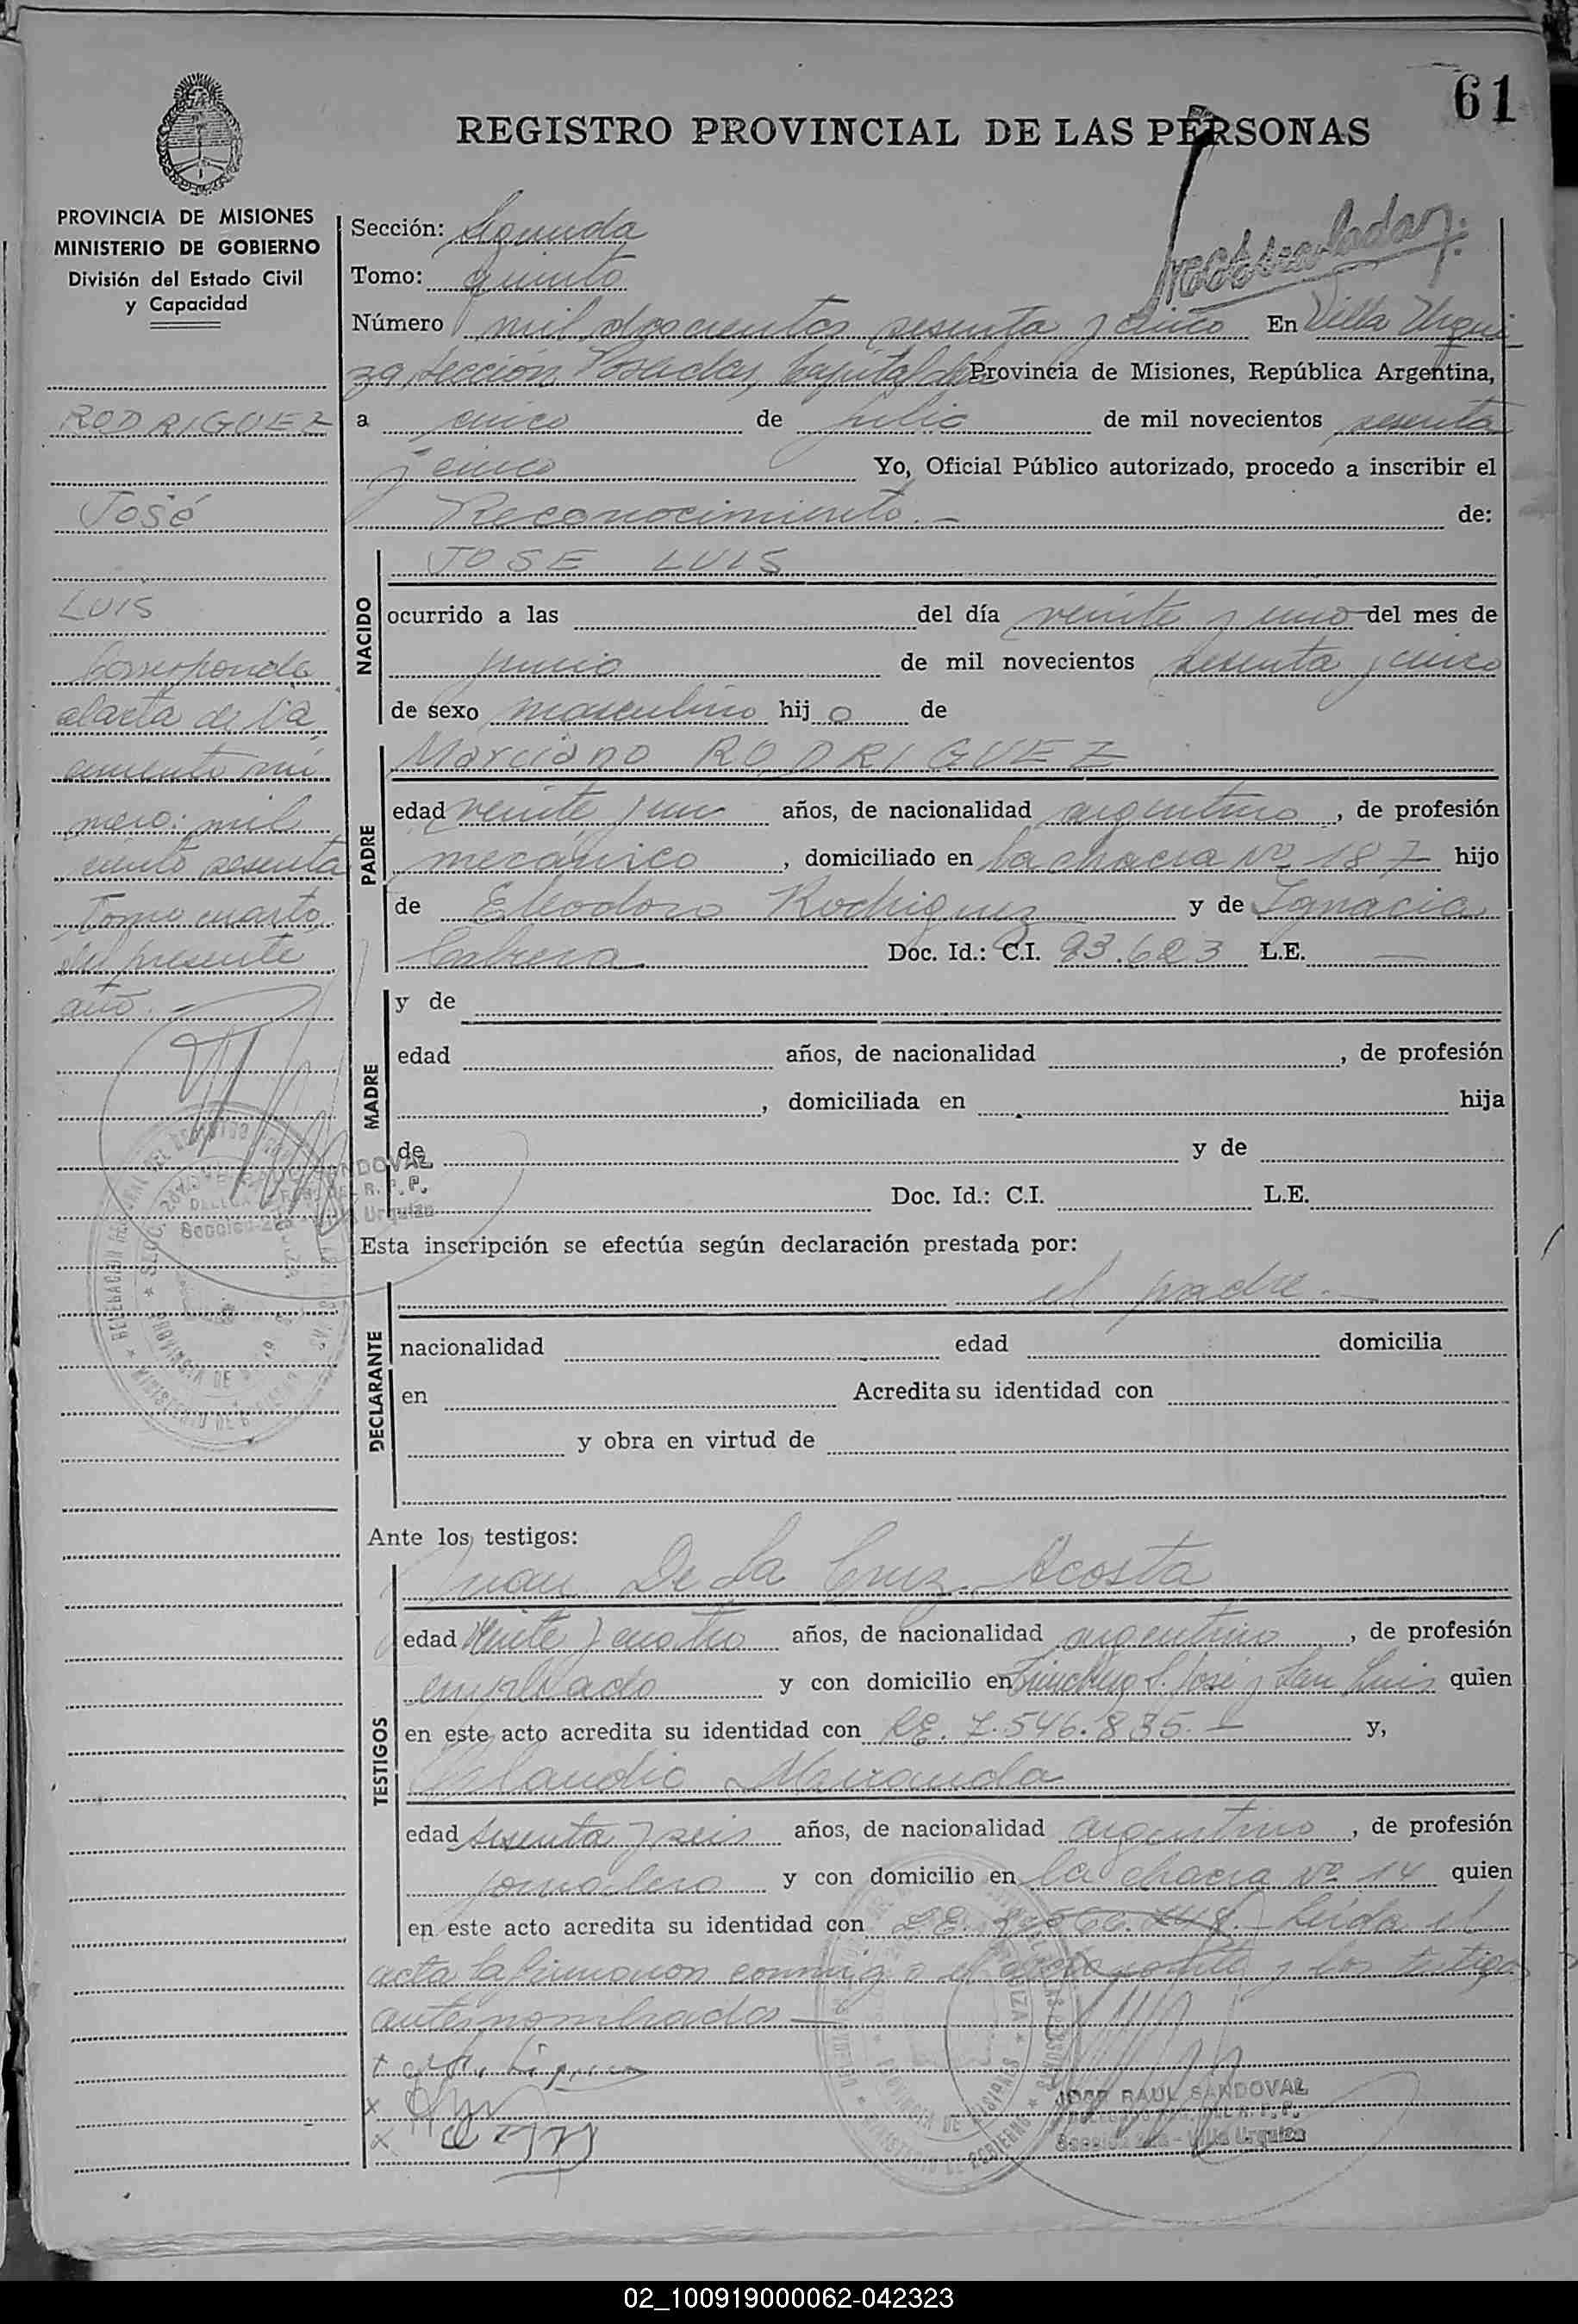 61
REGISTRO PROVINCIAL DE LAS PERSONAS
PROVINCIA DE MISIONES
MINISTERIO DE GOBIERNO
División del Estado Civil
y Capacidad
RODRIGUEZ
José
LUIS
Corresponde
al acta de na
cimiento nú
mero: mil
ciento sesenta
Tomo cuarto
del presente
año.
Sección: Segunda
Tomo: quinto
Número mil doscientos sesenta y cinco En Villa Urqui
za, Sección Posadas, Capital de la Provincia de Misiones, República Argentina,
a cinco de julio de mil novecientos sesenta
y cinco Yo, Oficial Público autorizado, procedo a inscribir el
Reconocimiento.- de:
NACIDO
JOSE LUIS
ocurrido a las del día veinte y uno del mes de
junio de mil novecientos sesenta y cinco
de sexo masculino hijo de
PADRE
Marciano RODRIGUEZ
edad veinte y un años, de nacionalidad argentino, de profesión
mecánico, domiciliado en la chacra Nº 187 hijo
de Eleodoro Rodriguez y de Ignacia
Cabrera Doc. Id.: C.I. 93.623 L.E. —
MADRE
y de
edad años, de nacionalidad , de profesión
, domiciliada en hija
de y de
Doc. Id.: C.I. L.E.
Esta inscripción se efectúa según declaración prestada por:
DECLARANTE
el padre.—
nacionalidad edad domicilia
en Acredita su identidad con
y obra en virtud de
Ante los testigos:
TESTIGOS
Juan De La Cruz Acosta
edad veinte y cuatro años, de nacionalidad argentino, de profesión
empleado y con domicilio en S. José y San Luis quien
en este acto acredita su identidad con L.E. 7.546.835.— y,
Claudio Miranda
edad sesenta y seis años, de nacionalidad argentino, de profesión
jornalero y con domicilio en la chacra Nº 14 quien
en este acto acredita su identidad con L.E. Leída el
acta la firmaron conmigo el y los testigos
antes nombrados—
JOSE RAUL SANDOVAL
Sección 2da - Villa Urquiza
02_100919000062-042323